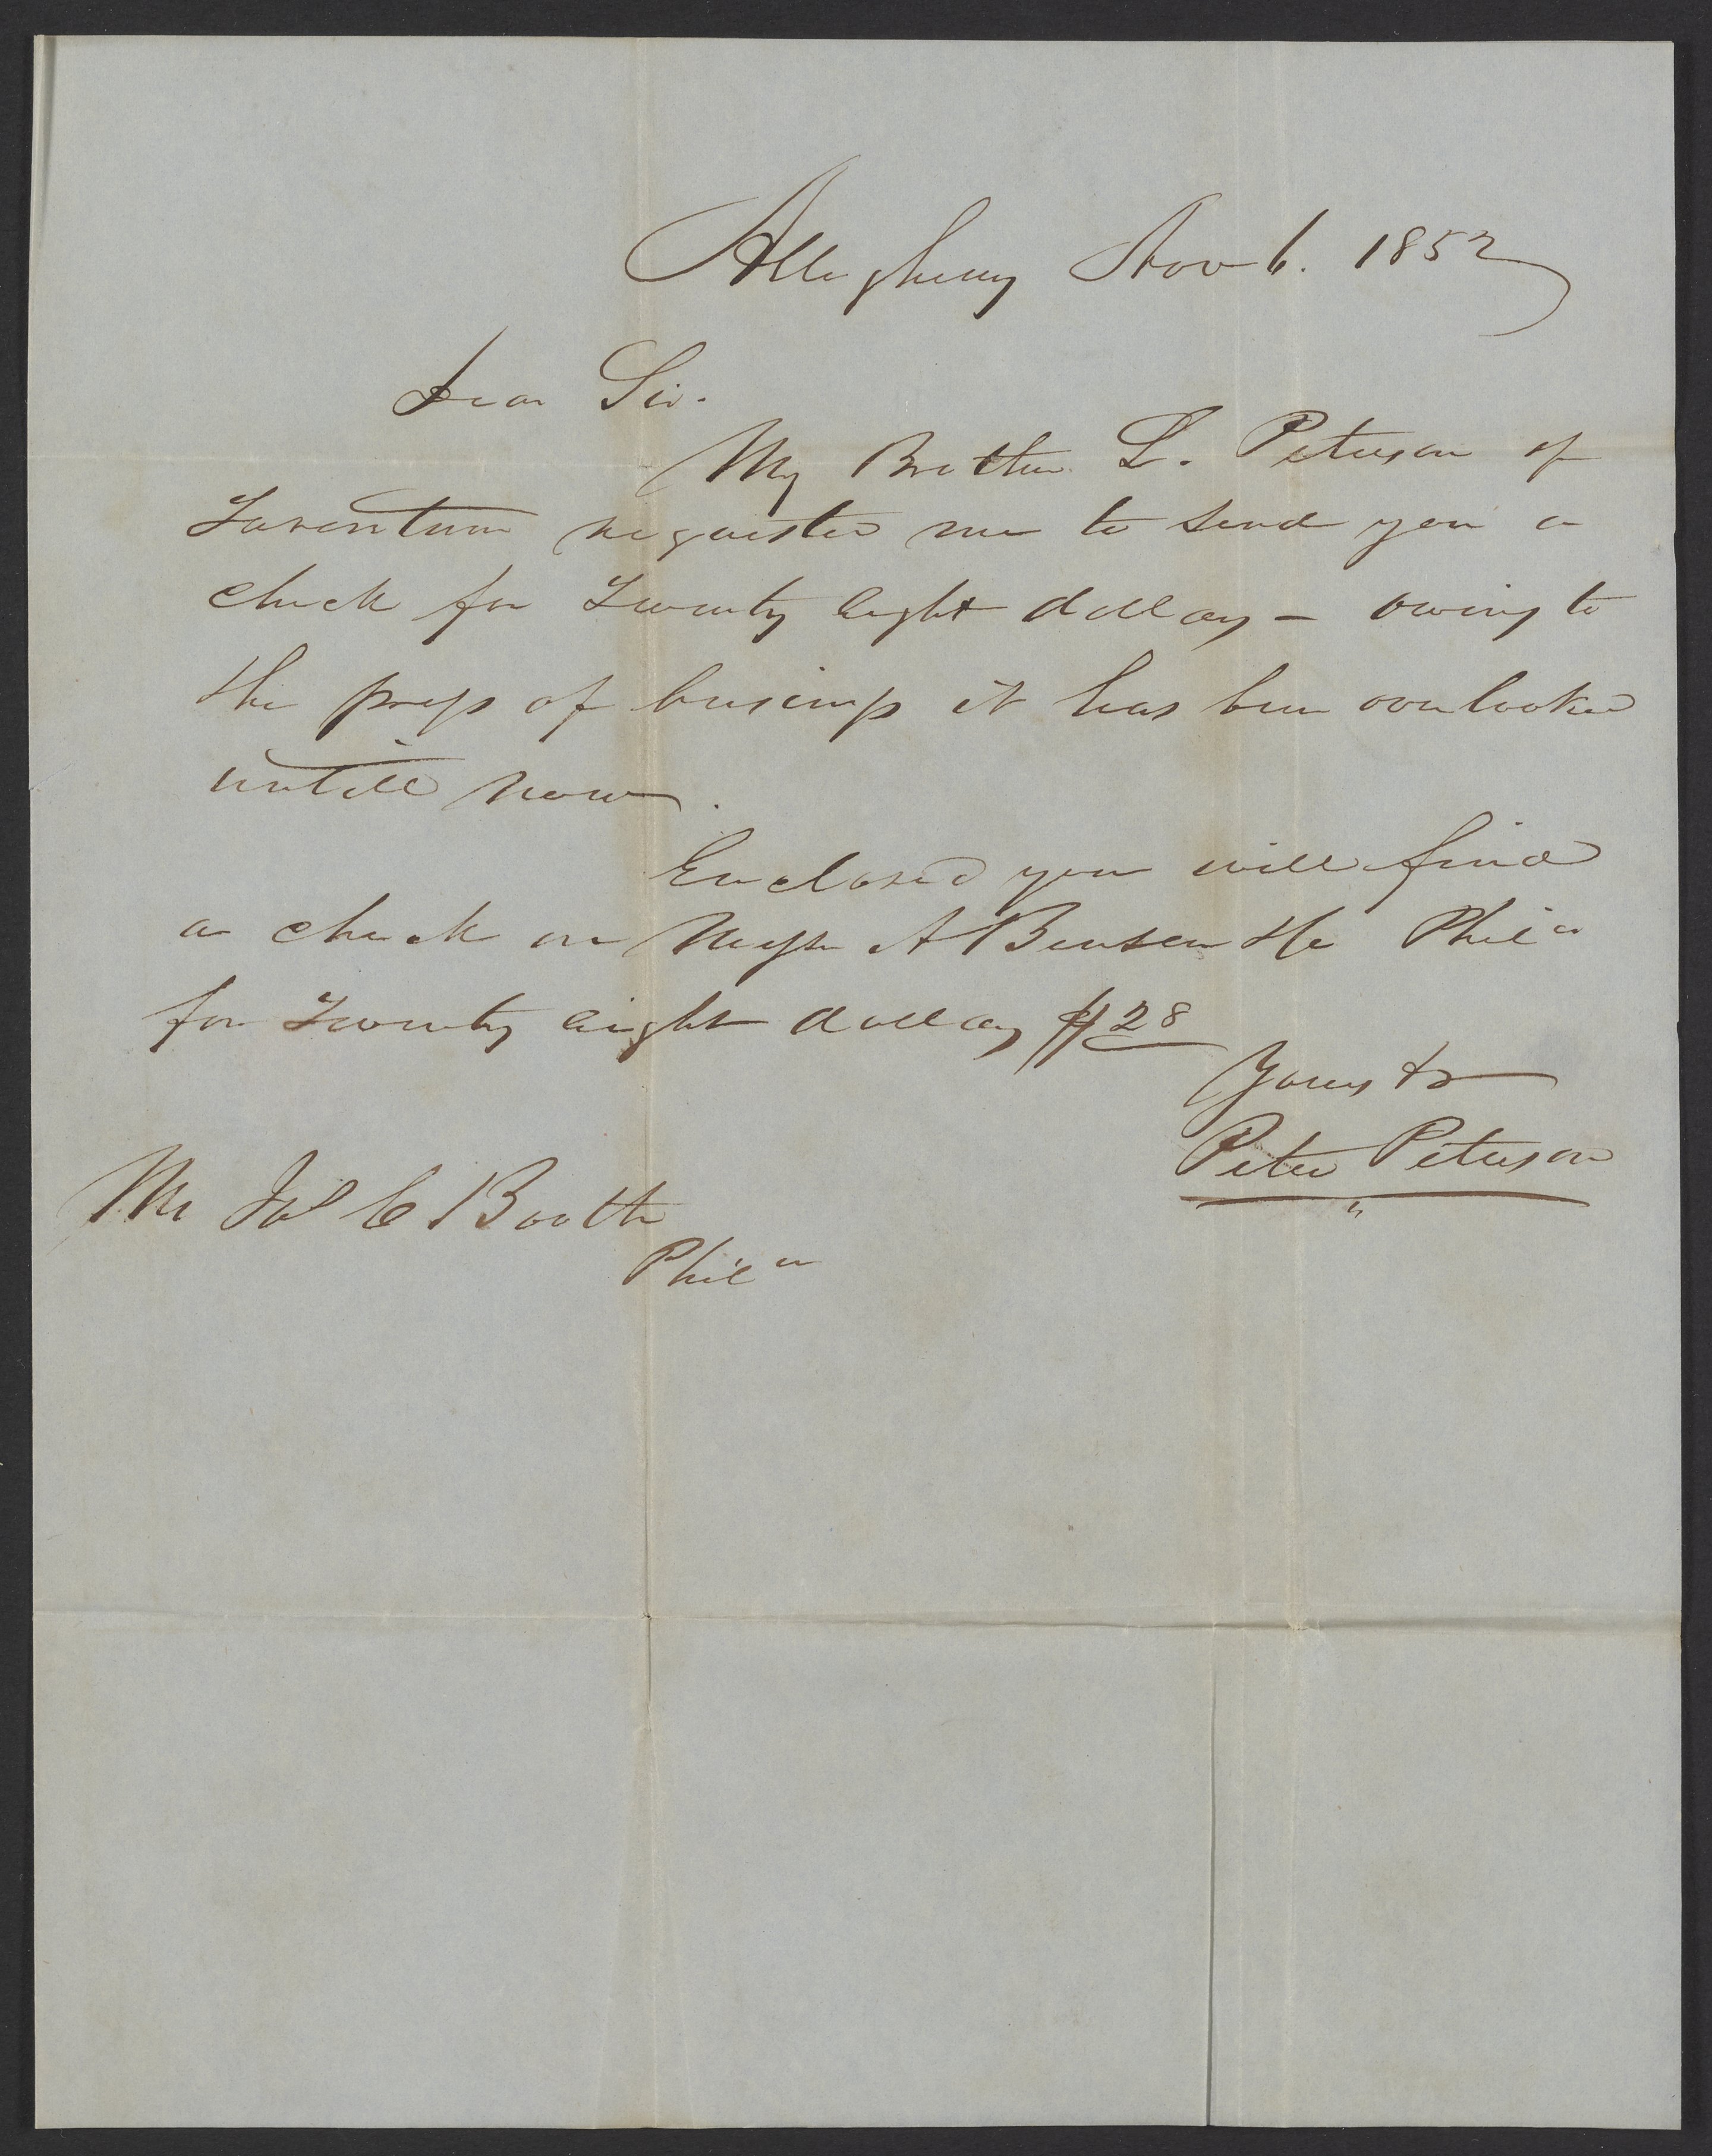 Allegheny Nov 6. 1852
Dear Sir.
My Brother L. Peterson of
Tarentum requested me to send you a
check for Twenty eight dollars – owing to
the press of business it has been overlooked
untill now.
Enclosed you will find
a check on Messrs A Benson & Co Phila
for Twenty eight dollars $28
Yours &c
Peter Peterson
Mr Jas C Booth
Phila